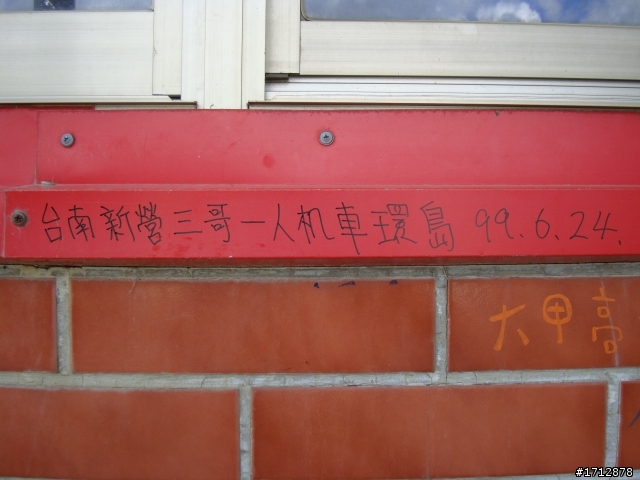 台南新營三哥一人机車環島 99.6.24.
大甲高
#1712878